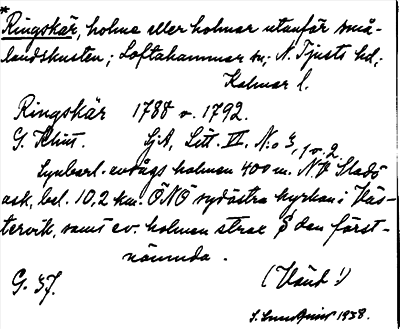 *Ringskär, holme eller holmar utanför små-
landskusten; Loftahammar sn; N. Tjusts hd;
Kalmar l.
Ringskär 1788 o. 1792.
G. Klint. SjA, Litt. VI. No 3, 1 o. 2.
Synbarl. avdags holmen 400 m. NV Sladö
ask, bel. 10,2 km. ÖNÖ sydöstra kyrkan i Väs-
tervik, samt ev. holmen strax S den först-
nämnda.
G. 37. (Vänd!)
S. Lundqvist 1938.